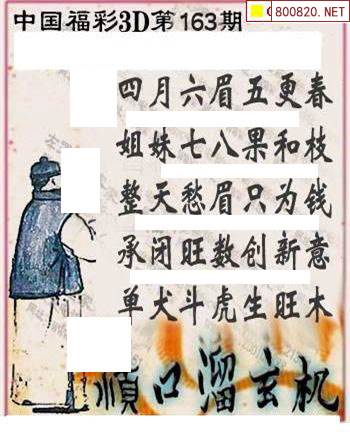 800820.NET
中国福彩3D第163期
四月六眉五更春
姐妹七八果和枝
整天愁眉只为钱
承闭旺数创新意
单犬斗虎生旺木
顺口溜玄机